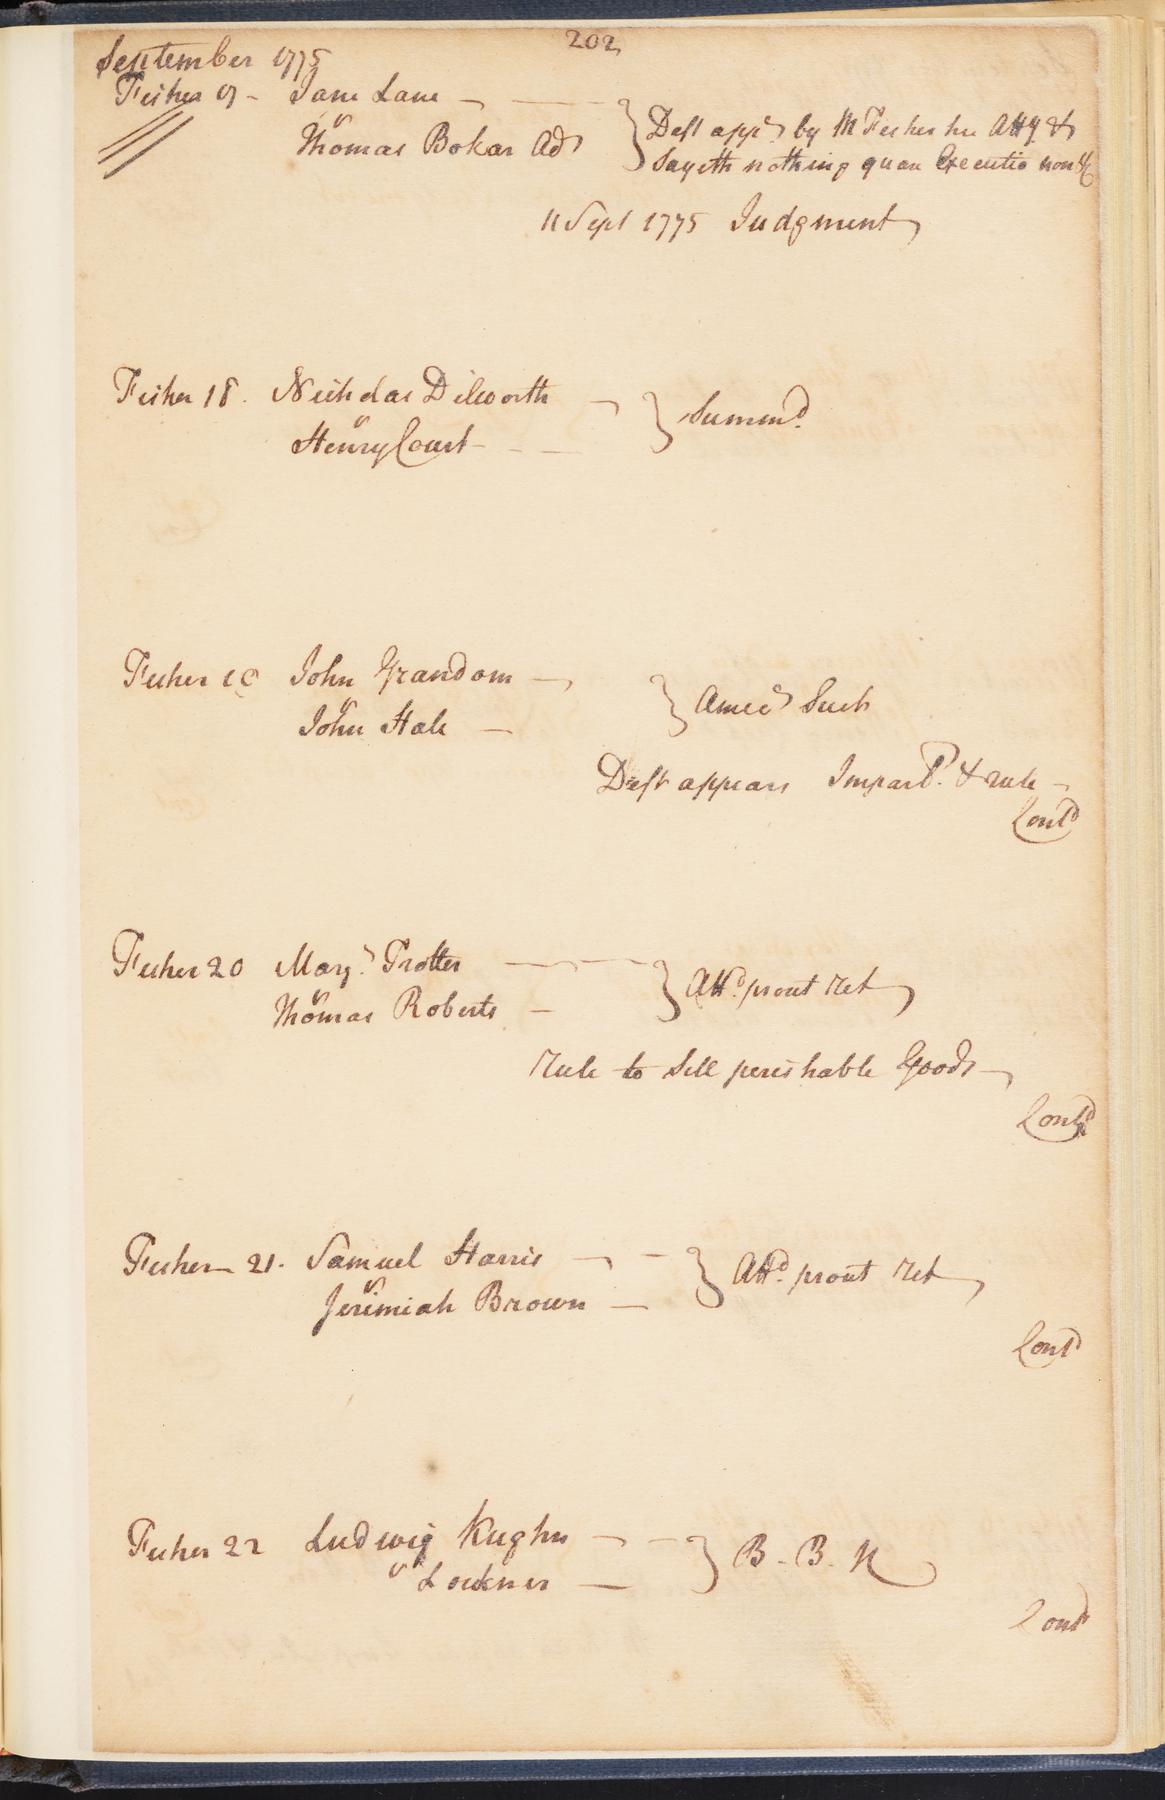 202
September 1775
Fisher 17 - Jane Lane
v
Thomas Bokar Ads
Deft appd by M Fisher his Atty &
Sayeth nothing quare Executio non &c
11 Sept 1775 Judgment
Fisher 18. Nicholas Dilworth
v
Henry Court
Summd.
Fisher 19 John Grandom
v
John Hale
Amecd Such
Deft appears Imparl. & rule
Contd
Fisher 20 Mary Trotter
v
Thomas Roberts
Attd. prout Ret
Rule to Sell perishable Goods
Contd
Fisher 21. Samuel Harris
v
Jerimiah Brown
Attd. prout Ret
Contd
Fisher 22 Ludwig Kughn
v Lockner
B. B. N
Contd